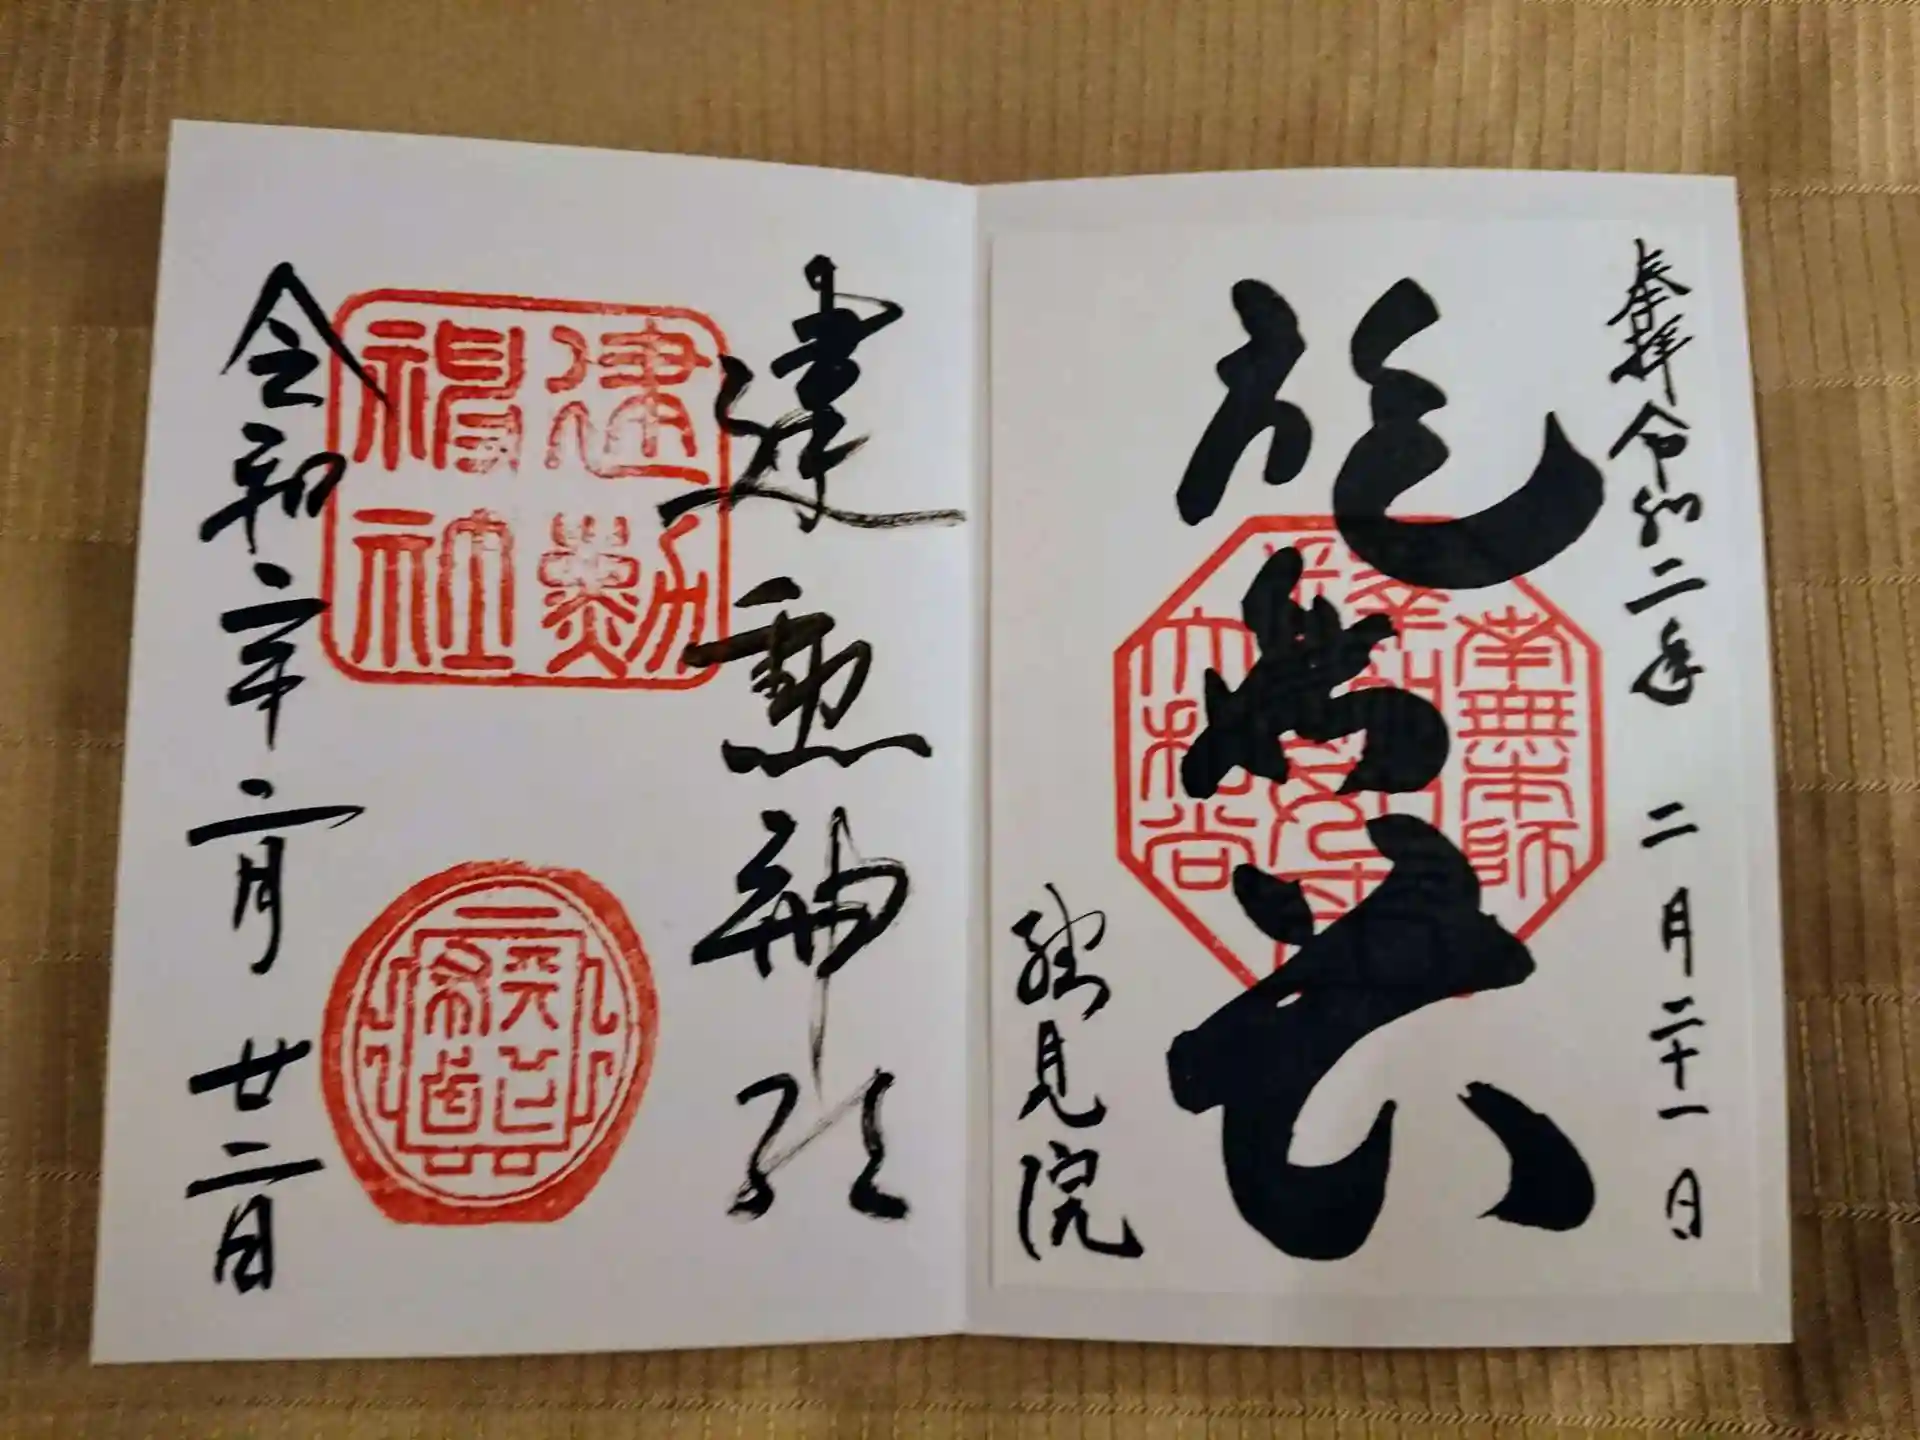 奉拝 令和二年 二月二十一日
施無畏
総見院
南無本師
大和尚
建勲神社
建勲
神社
令和二年二月廿二日